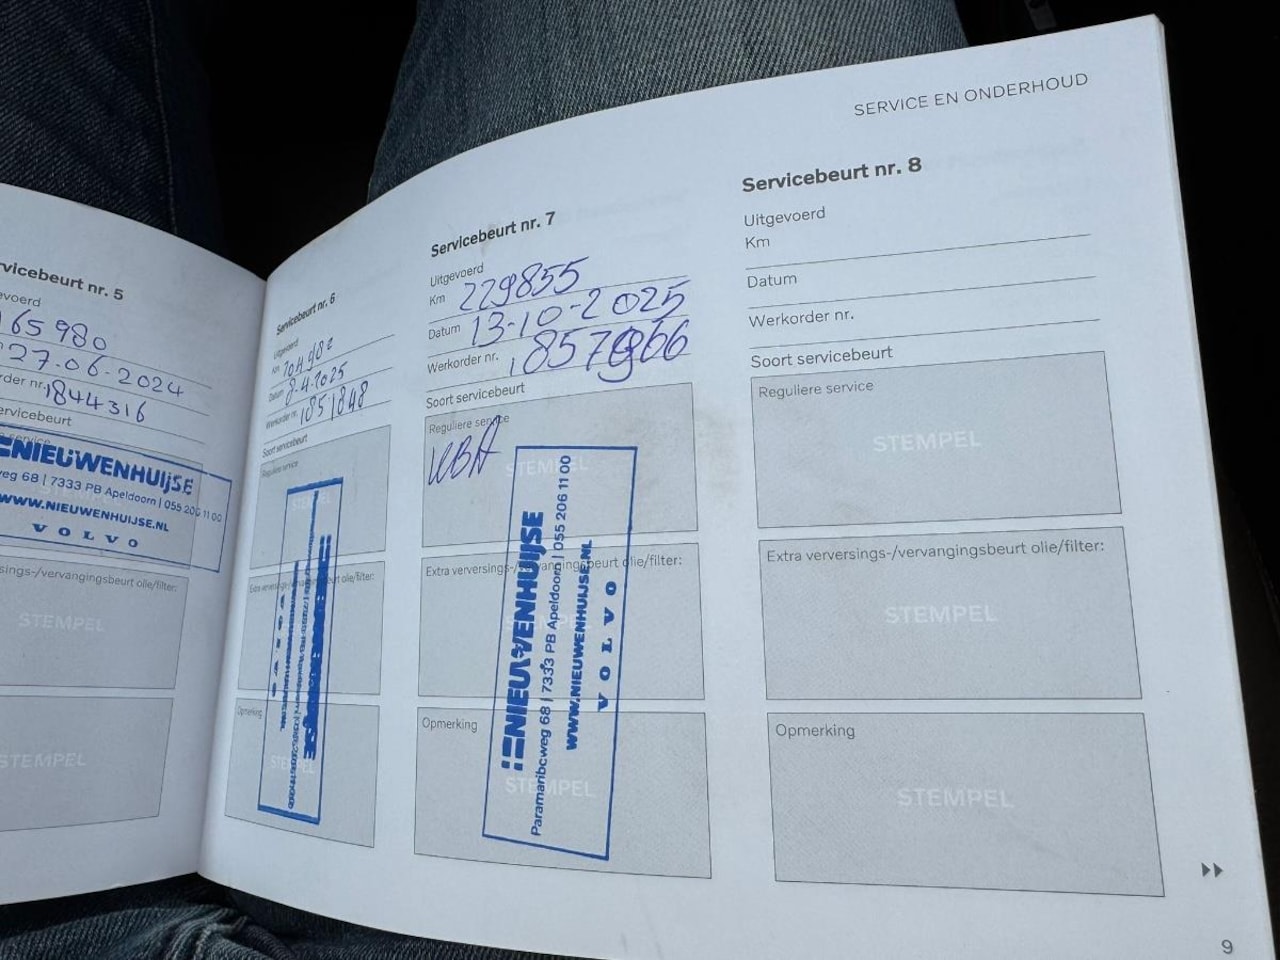 SERVICE EN ONDERHOUD
rvicebeurt nr. 5
evoerd
165980
27.06.2024
rder nr. 1844316
ervicebeurt
service
NIEUWENHUIJSE
weg 68 | 7333 PB Apeldoorn | 055 206 11 00
WWW.NIEUWENHUIJSE.NL
VOLVO
sings-/vervangingsbeurt olie/filter:
STEMPEL
STEMPEL
Servicebeurt nr. 6
Uitgevoerd
Km
Datum 8.4.2025
Werkorder nr. 1851848
Soort servicebeurt
Reguliere service
STEMPEL
Extra verversings-/vervangingsbeurt olie/filter:
Opmerking
STEMPEL
Servicebeurt nr. 7
Uitgevoerd
Km 229855
Datum 13-10-2025
Werkorder nr. 1857966
Soort servicebeurt
Reguliere service
STEMPEL
NIEUWENHUIJSE
Paramariboweg 68 | 7333 PB Apeldoorn | 055 206 11 00
WWW.NIEUWENHUIJSE.NL
VOLVO
Extra verversings-/vervangingsbeurt olie/filter:
STEMPEL
Opmerking
STEMPEL
Servicebeurt nr. 8
Uitgevoerd
Km
Datum
Werkorder nr.
Soort servicebeurt
Reguliere service
STEMPEL
Extra verversings-/vervangingsbeurt olie/filter:
STEMPEL
Opmerking
STEMPEL
9